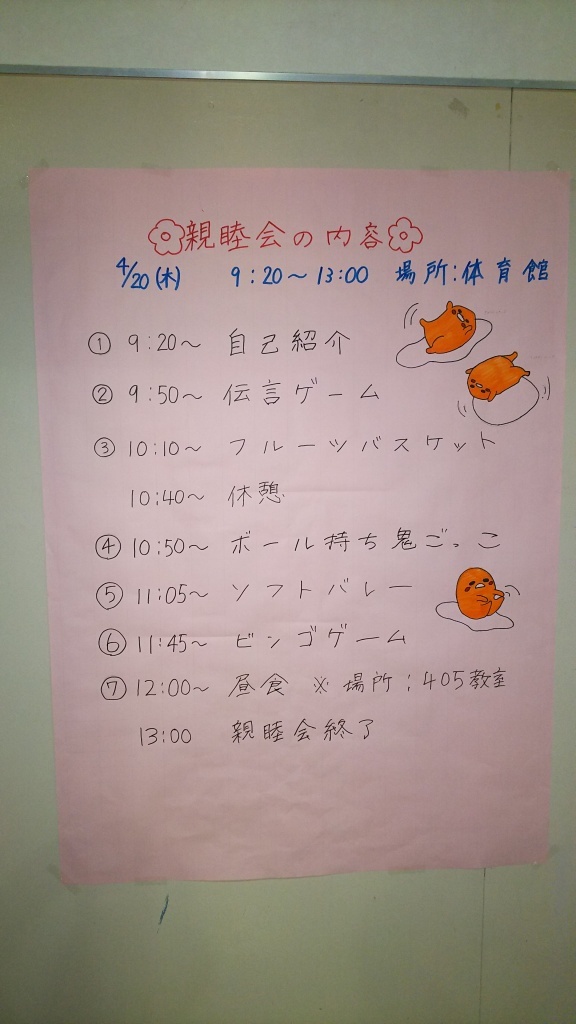 親睦会の内容
4/20(木) 9:20～13:00 場所:体育館
① 9:20～ 自己紹介
② 9:50～ 伝言ゲーム
③ 10:10～ フルーツバスケット
10:40～ 休憩
④ 10:50～ ボール持ち鬼ごっこ
⑤ 11:05～ ソフトバレー
⑥ 11:45～ ビンゴゲーム
⑦ 12:00～ 昼食 ※場所:405教室
13:00 親睦会終了